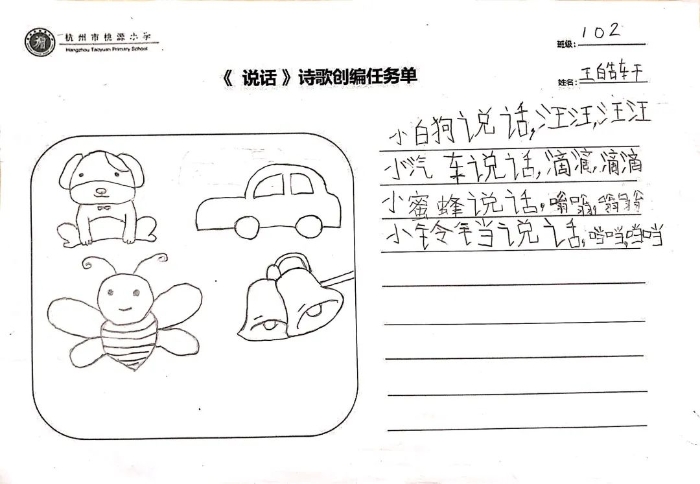 杭州市桃源小学
Hangzhou Taoyuan Primary School
班级: 102
《 说话 》诗歌创编任务单
姓名: 王皓轩
小白狗说话,汪汪,汪汪
小汽车说话,滴滴,滴滴
小蜜蜂说话,嗡嗡,嗡嗡
小铃铛说话,当当,当当